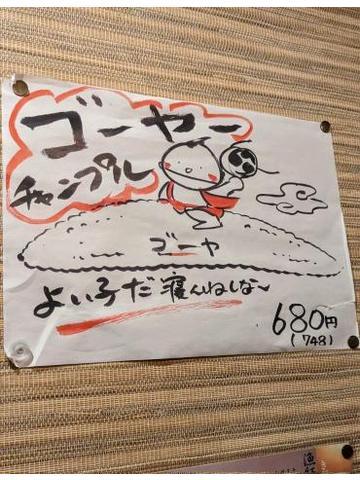 ゴーヤー
チャンプル
ゴーヤ
よい子だ寝んねしな〜
680円
(748)